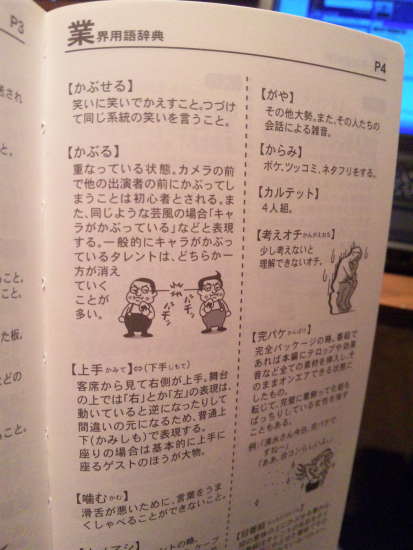 P3
業界用語辞典
P4
【かぶせる】
笑いに笑いでかえすこと。つづけ
て同じ系統の笑いを言うこと。
【かぶる】
重なっている状態。カメラの前
で他の出演者の前にかぶってし
まうことは初心者とされる。ま
た、同じような芸風の場合「キャ
ラがかぶっている」などと表現
する。一般的にキャラがかぶっ
ているタレントは、どちらか一
方が消え
ていく
ことが
多い。
【上手かみて】⇔(下手しもて)
客席から見て右側が上手。舞台
の上では「右」とか「左」の表現は、
動いていると逆になったりして
間違いの元になるため、普通上
下(かみしも)で表現する。
座りの場合は基本的に上手に
座るゲストのほうが大物。
【噛むかむ】
滑舌が悪いために、言葉をうま
くしゃべることができないこと。
【がや】
その他大勢。また、その人たちの
会話による雑音。
【からみ】
ボケ、ツッコミ、ネタフリをする。
【カルテット】
4人組。
【考えオチかんがえおち】
少し考えないと
理解できないオチ。
【完パケかんぱけ】
完全パッケージの略。番組で
あれば本編にテロップや効果
音など全ての素材を挿入し、そ
のままオンエアできる状態に
したもの。
転じて、完璧に着飾って化粧も
ばっちりしている女性を指す
こともある。